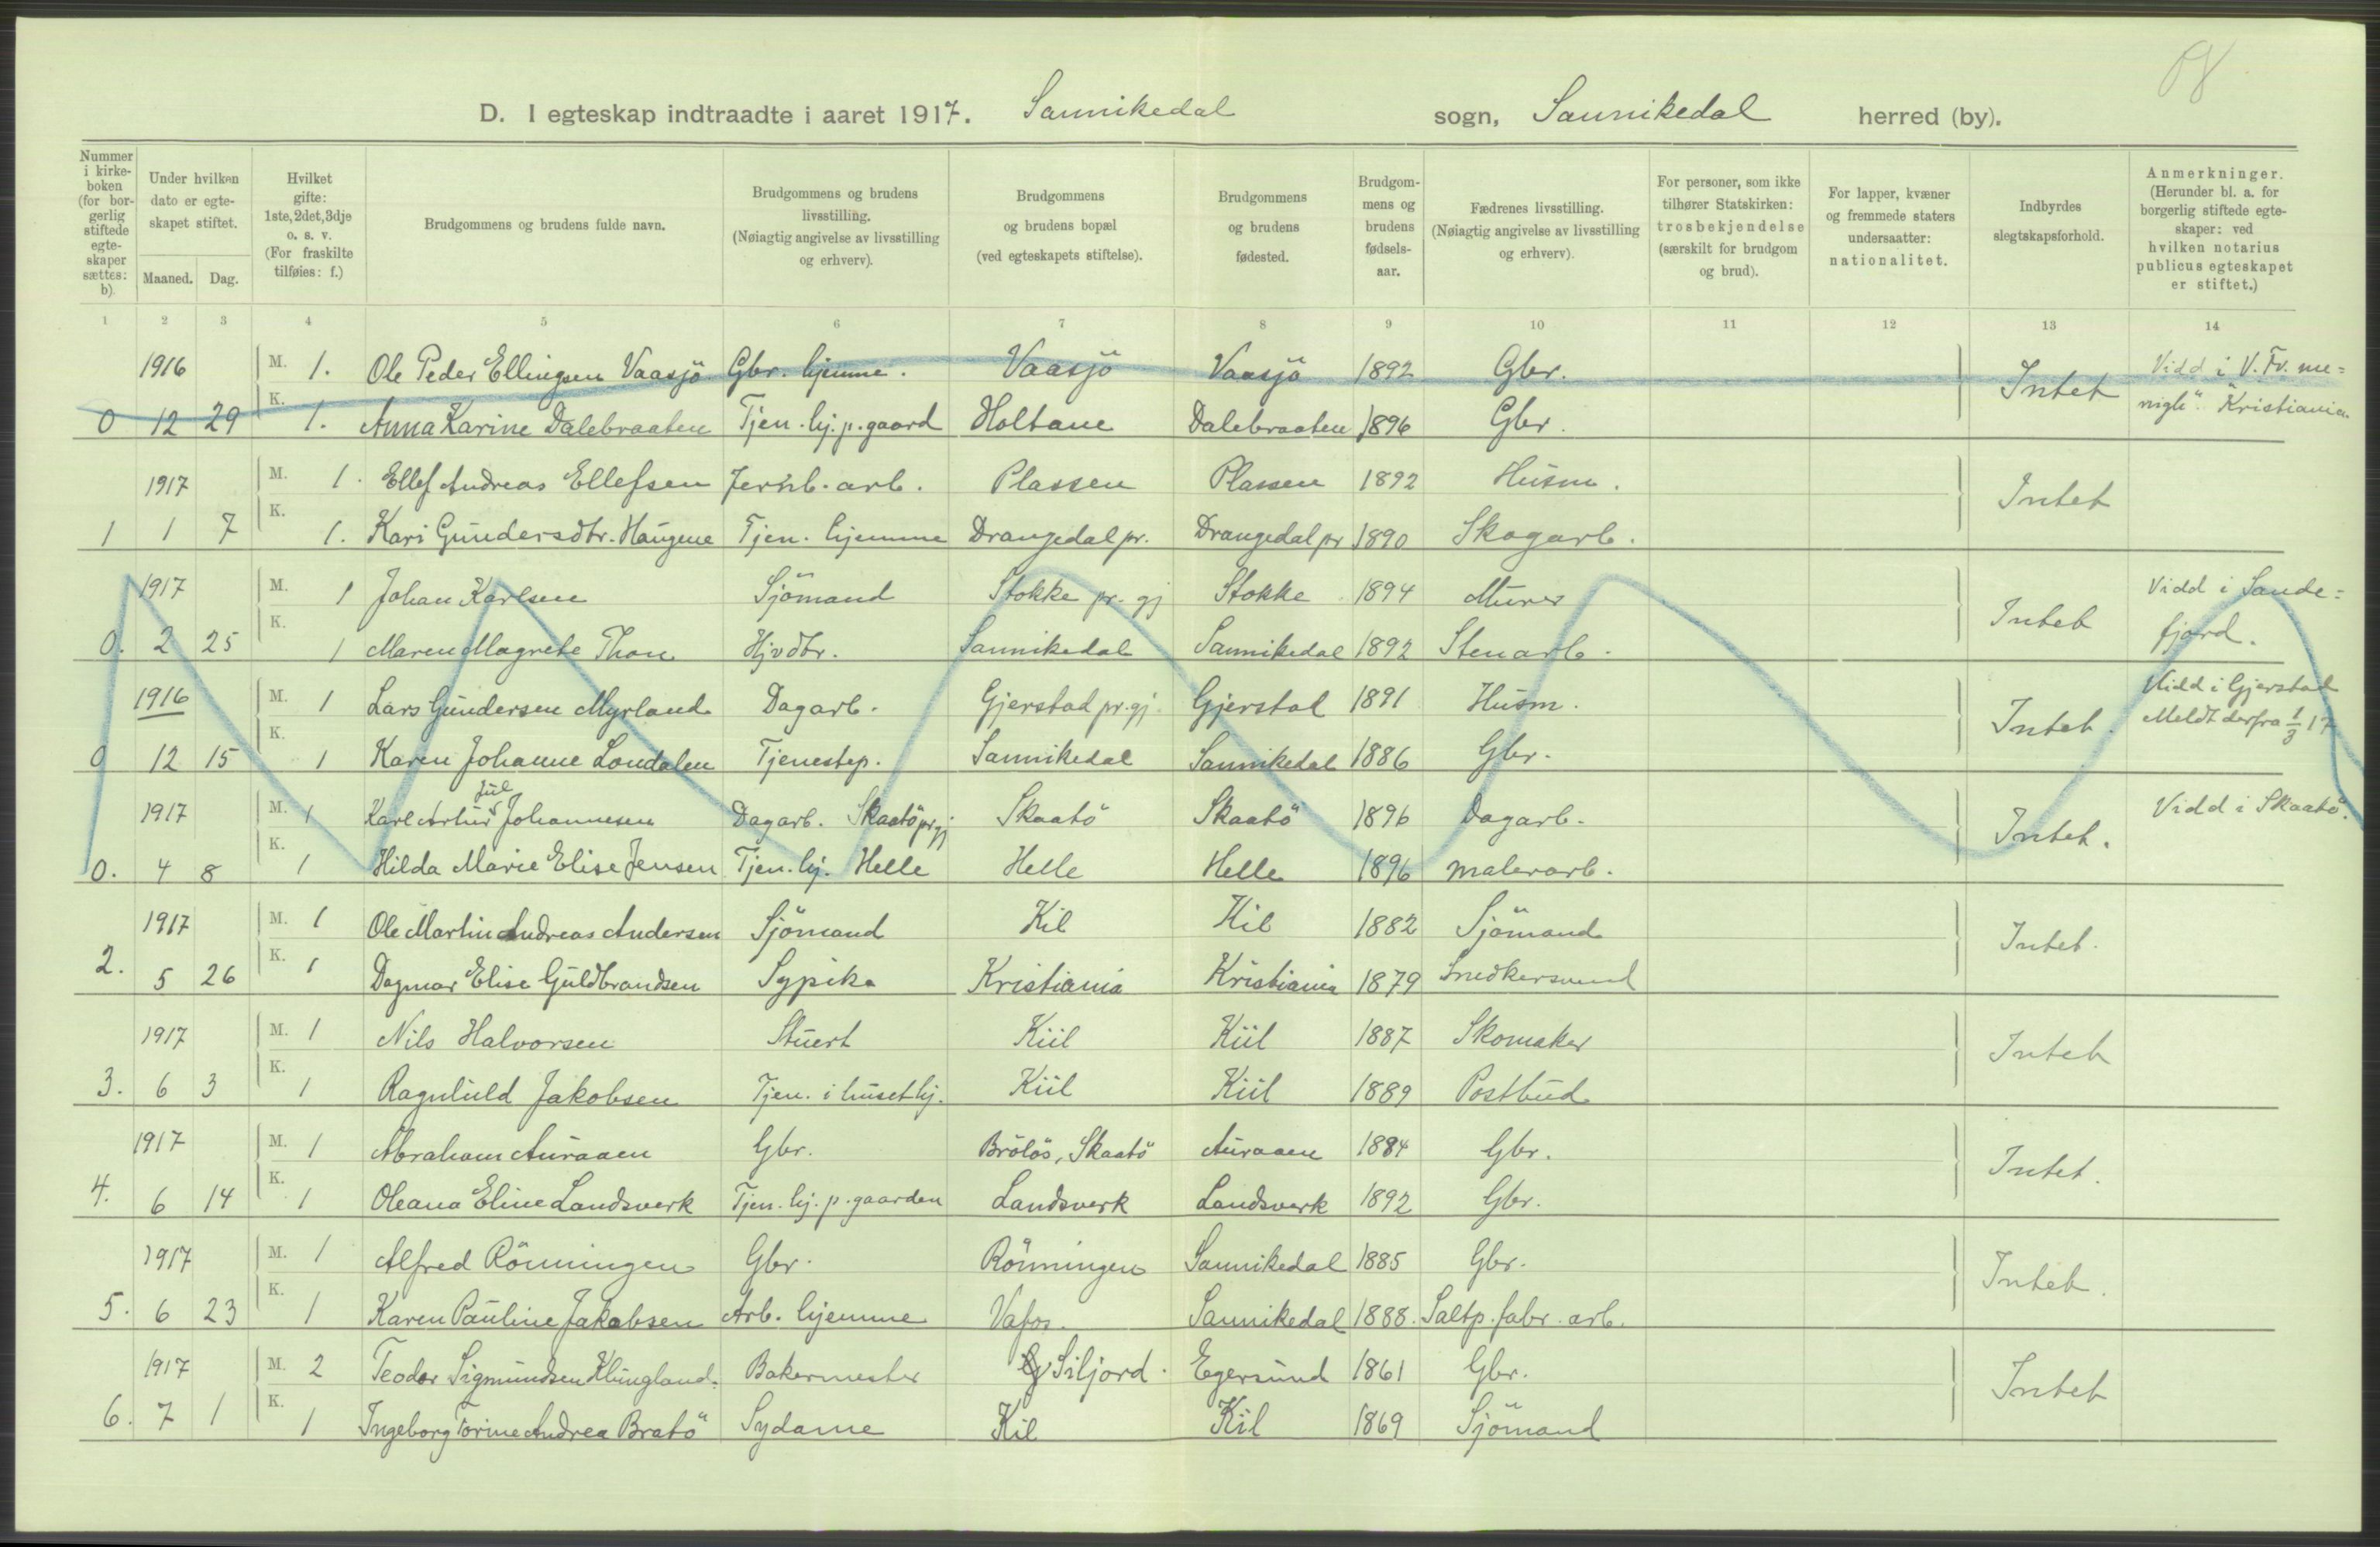 D. I egteskap indtraadte i aaret 1917. Sannikedal sogn, Sannikedal herred (by).
Nummer i kirke-boken (for bor-gerlig stiftede egte-skaper sættes: b).
Under hvilken dato er egte-skapet stiftet.
Maaned. Dag.
Hvilket gifte: 1ste, 2det, 3dje o. s. v. (For fraskilte tilføies: f.)
Brudgommens og brudens fulde navn.
Brudgommens og brudens livsstilling. (Nøiagtig angivelse av livsstilling og erhverv).
Brudgommens og brudens bopæl (ved egteskapets stiftelse).
Brudgommens og brudens fødested.
Brudgom-mens og brudens fødsels-aar.
Fædrenes livsstilling. (Nøiagtig angivelse av livsstilling og erhverv).
For personer, som ikke tilhører Statskirken: trosbekjendelse (særskilt for brudgom og brud).
For lapper, kvæner og fremmede staters undersaatter: nationalitet.
Indbyrdes slegtskapsforhold.
Anmerkninger. (Herunder bl. a. for borgerlig stiftede egte-skaper: ved hvilken notarius publicus egteskapet er stiftet.)
1 2 3 4 5 6 7 8 9 10 11 12 13 14
1916 M. 1. Ole Peder Ellingsen Vaasjö Gbr. hjemme. Vaasjö Vaasjö 1892 Gbr. Intet Vidd i V. Fr. me=
0 12 29 K. 1. Anna Karine Dalebraaten Tjen. hj. p. gaard Holtane Dalebraaten 1896 Gbr. nigh" Kristiania
1917 M. 1. Ellef Andreas Ellefsen Jernb. arb. Plassen Plassen 1892 Husm. Intet
1 1 7 K. 1. Kari Gundersdtr. Haugene Tjen. hjemme Drangedal pr. Drangedal pr 1890 Skogarb.
1917 M. 1 Johan Karlsen Sjömand Stokke pr. gj Stokke 1894 Murer Intet Vidd i Sande=
0. 2 25 K. 1 Maren Magrete Thon Hjvdtr. Sannikedal Sannikedal 1892 Stenarb. fjord.
1916 M. 1 Lars Gundersen Myrland Dagarb. Gjerstad pr. gj. Gjerstad 1891 Husm. Intet. Vidd i Gjerstad
Meldt derfra 1/3 17
0 12 15 K. 1 Karen Johanne Londalen Tjenestep. Sannikedal Sannikedal 1886 Gbr.
Jul
1917 M. 1 Karl Artur Johannesen Dagarb. Skaatö pr gj Skaatö Skaatö 1896 Dagarb. Intet. Vidd i Skaatö.
0. 4 8 K. 1 Hilda Marie Elise Jensen Tjen. hj. Helle Helle Helle 1896 malerarb.
1917 M. 1 Ole Martin Andreas Andersen Sjömand Kil Kil 1882 Sjömand Intet.
2. 5 26 K. 1 Dagmar Elise Guldbrandsen Sypike Kristiania Kristiania 1879 Snedkersvend
1917 M. 1 Nils Halvorsen Stuert Kiil Kiil 1887 Skomaker Intet
3. 6 3 K. 1 Ragnhild Jakobsen Tjen. i huset hj. Kiil Kiil 1889 Postbud
1917 M. 1 Abraham Auraaen Gbr. Brölös, Skaatö Auraaen 1884 Gbr. Intet.
4. 6 14 K. 1 Oleana Eline Landsverk Tjen. hj. p. gaarden Landsverk Landsverk 1892 Gbr.
1917 M. 1 Alfred Rönningen Gbr. Rönningen Sannikedal 1885 Gbr. Intet.
5. 6 23 K. 1 Karen Pauline Jakobsen Arb. hjemme Vafos. Sannikedal 1888. Saltp. fabr. arb.
1917 M. 2 Teodor Sigmundsen Klungland. Bakermester Siljord. Egersund 1861 Gbr. Intet
6. 7 1 K. 1 Ingeborg Torine Andrea Bratö Sydame Kil Kil 1869 Sjömand